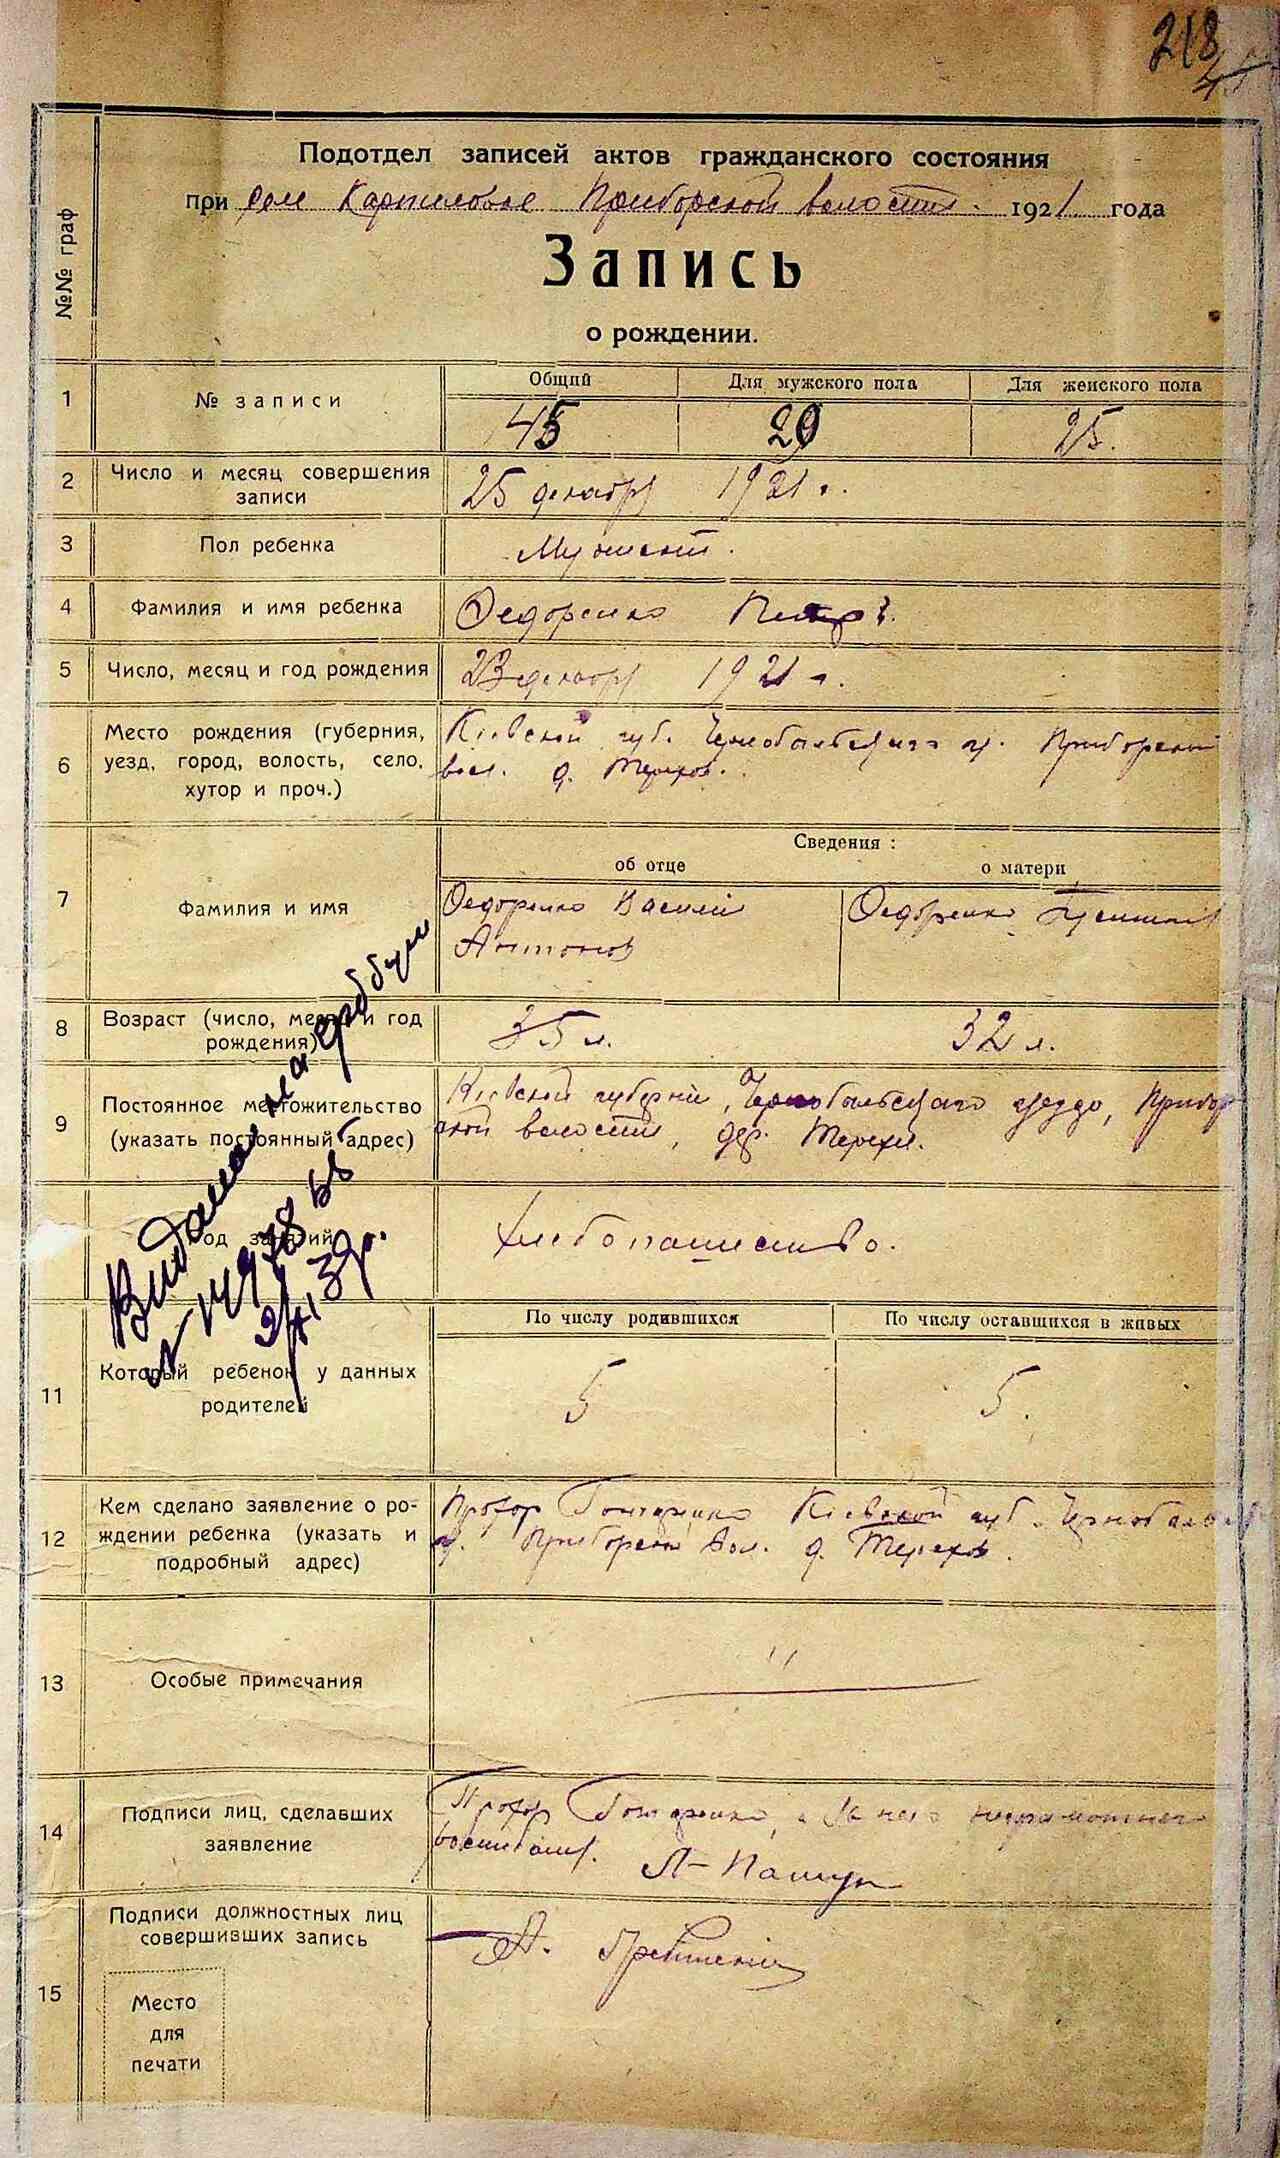 218
Подотдел записей актов гражданского состояния
при селе Карпиловке Приборской волости. 1921 года
№№ граф
Запись
о рождении.
Общий Для мужского пола Для женского пола
1 № записи 45 20 25.
2 Число и месяц совершения записи 25 декабря 1921 г.
3 Пол ребенка Мужской.
4 Фамилия и имя ребенка Федоренко Петр.
5 Число, месяц и год рождения 23 декабря 1921 г.
6 Место рождения (губерния, уезд, город, волость, село, хутор и проч.) Кіевской губ. Чернобыльскаго у. Приборской
вол. д. Терехов.
Сведения :
об отце о матери
7 Фамилия и имя Федоренко Василий Федоренко
Антонов
8 Возраст (число, месяц и год рождения) 35 л. 32 л.
9 Постоянное местожительство (указать постоянный адрес) Кіевской губерніи, Чернобыльскаго уезда, Прибор
ской волости, дер. Терехи.
Род занятий Хлебопашество.
По числу родившихся По числу оставшихся в живых
11 Который ребенок у данных родителей 5 5.
12 Кем сделано заявление о рождении ребенка (указать и подробный адрес) Прохор Гончаренко Кіевской губ. Чернобыльск
у. Приборской вол. д. Терехов.
13 Особые примечания
14 Подписи лиц, сделавших заявление Прохор Гончаренко, а за него неграмотного
А.
15 Подписи должностных лиц совершивших запись А.
Место
для
печати
Видана
№ 14978